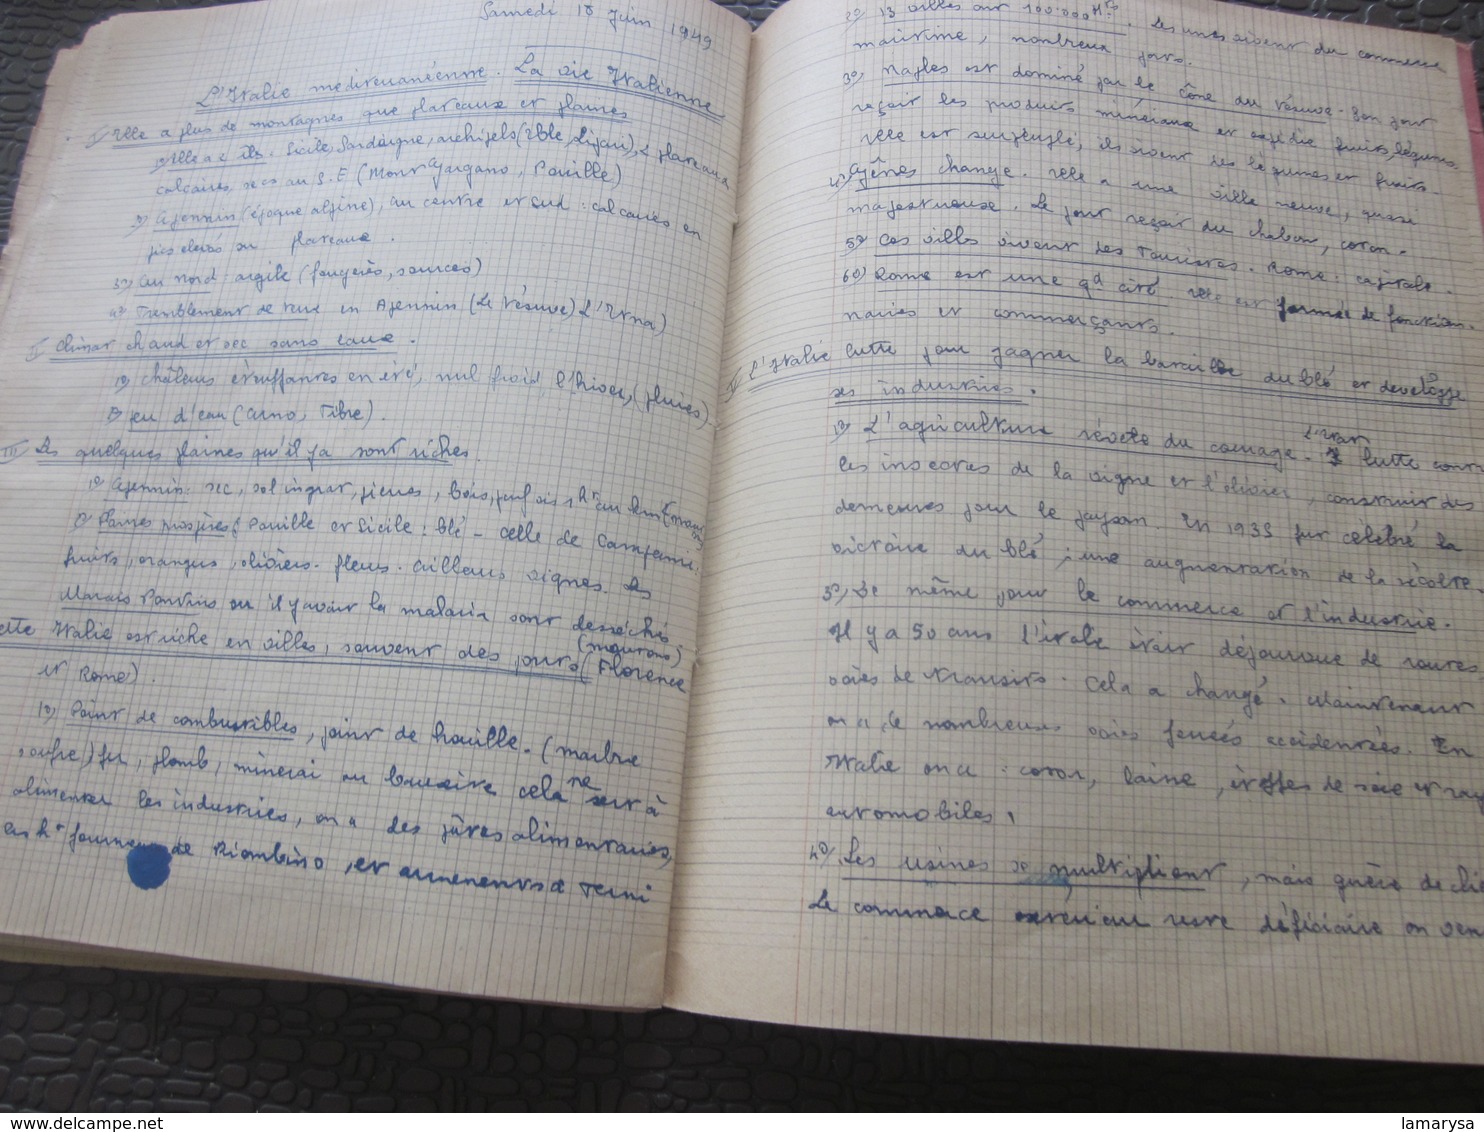 Samedi 18 Juin 1949
L'Italie méditerranéenne. La vie Italienne
I Elle a plus de montagnes que plateaux et plaines
1º) Elle a 2 îles. Sicile, Sardaigne, archipels (Elbe, Lipari), 2 plateaux
calcaires secs au S.E (Mont Gargano, Pouille)
2º) Apennin (époque alpine), au centre et sud : calcaires en
pics élevés ou plateaux.
3º) au nord : argile (fougères, sources)
4º) Tremblement de terre en Apennin (Le Vésuve) L'Etna)
II Climat chaud et sec sans eaux.
1º) Chaleurs étouffantes en été, nul froid l'hiver, (pluies).
2º) peu d'eau (Arno, Tibre).
III Les quelques plaines qu'il y a sont riches.
1º) Apennin : sec, sol ingrat, pierres, bois, parfois 1 hr au km
2º) Plaines prospères : Pouille et Sicile : blé - celle de Campanie :
fruits, oranges, oliviers. fleurs. ailleurs vignes. Les
Marais Pontins ou il y avait la malaria sont desséchés
Cette Italie est riche en villes, souvent des ports (Florence
et Rome).
1º) Point de combustibles, point de houille. (marbre
soufre) fer, plomb, minerai ou bauxite cela ne sert à
alimenter les industries, on a des pâtes alimentaires,
les hts fourneaux de Piombino, et armements à Terni
2º) 13 villes ont 100.000 Hts. Les unes vivent du commerce
maritime, nombreux ports.
3º) Naples est dominé par le Cône du Vésuve. Son port
reçoit les produits minéraux et expédie fruits, légumes.
Elle est surpeuplé, ils vivent des légumes et fruits.
4º) Gênes change. Elle a une ville neuve, quasi
majestueuse. Le port reçoit du charbon, coton.
5º) Ces villes vivent des Touristes. Rome : capitale.
6º) Rome est une gd cité. Elle est formée de fonction-
naires et commerçants.
IV L'Italie lutte pour gagner la bataille du blé et développe
ses industries.
1º) L'agriculture révèle du courage. L'état lutte contre
les insectes de la vigne et l'olivier, construit des
demeures pour le paysan. En 1933 fut célébré la
victoire du blé ; une augmentation de la récolte.
3º) De même pour le commerce et l'industrie.
Il y a 50 ans l'Italie était dépourvue de routes
voies de transits. Cela a changé. Maintenant
on a de nombreuses voies ferrées accidentées. En
Italie on a : coton, laine, étoffes de soie et
automobiles.
4º) Les usines se multiplient, mais guère de
Le commerce extérieur reste déficitaire on
lamarysa